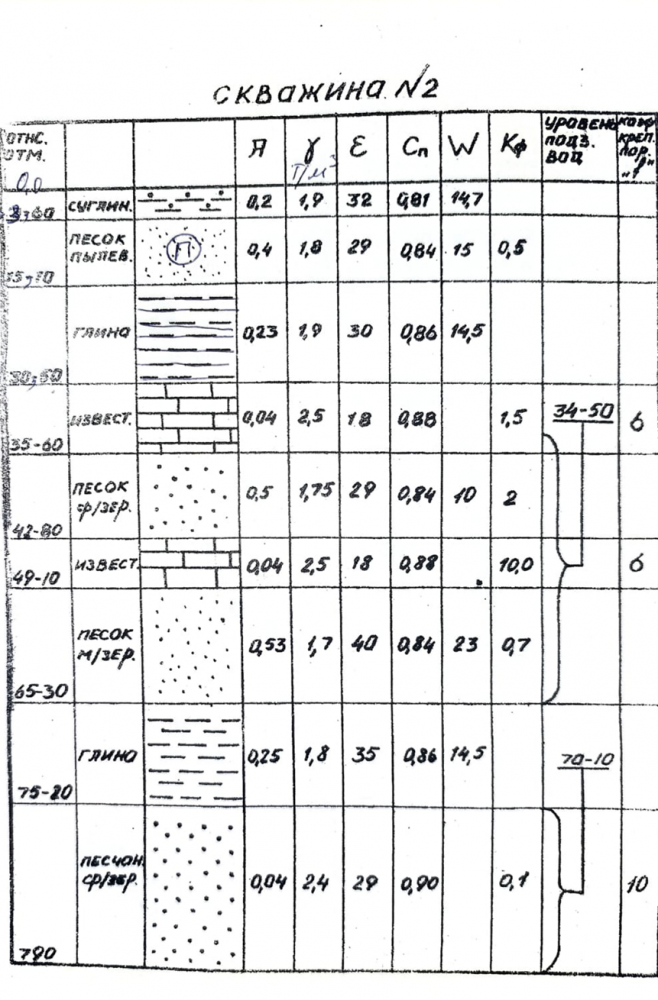 СКВАЖИНА №2
ОТНС. ОТМ. Я γ Т/М³ ε Сп W Кф УРОВЕНЬ ПОДЗ. ВОД КОЭФ КРЕП. ПОР. "f"
0,0
СУГЛИН. 0,2 1,9 32 0,81 14,7
ПЕСОК ПЫЛЕВ. П 0,4 1,8 29 0,84 15 0,5
ГЛИНА 0,23 1,9 30 0,86 14,5
ИЗВЕСТ. 0,04 2,5 18 0,88 1,5 34-50 6
35-60
ПЕСОК СР/ЗЕР. 0,5 1,75 29 0,84 10 2
42-80
ИЗВЕСТ. 0,04 2,5 18 0,88 10,0 6
49-10
ПЕСОК М/ЗЕР. 0,53 1,7 40 0,84 23 0,7
65-30
ГЛИНА 0,25 1,8 35 0,86 14,5 70-10
75-20
ПЕСЧАН. СР/ЗЕР. 0,04 2,4 29 0,90 0,1 10
790